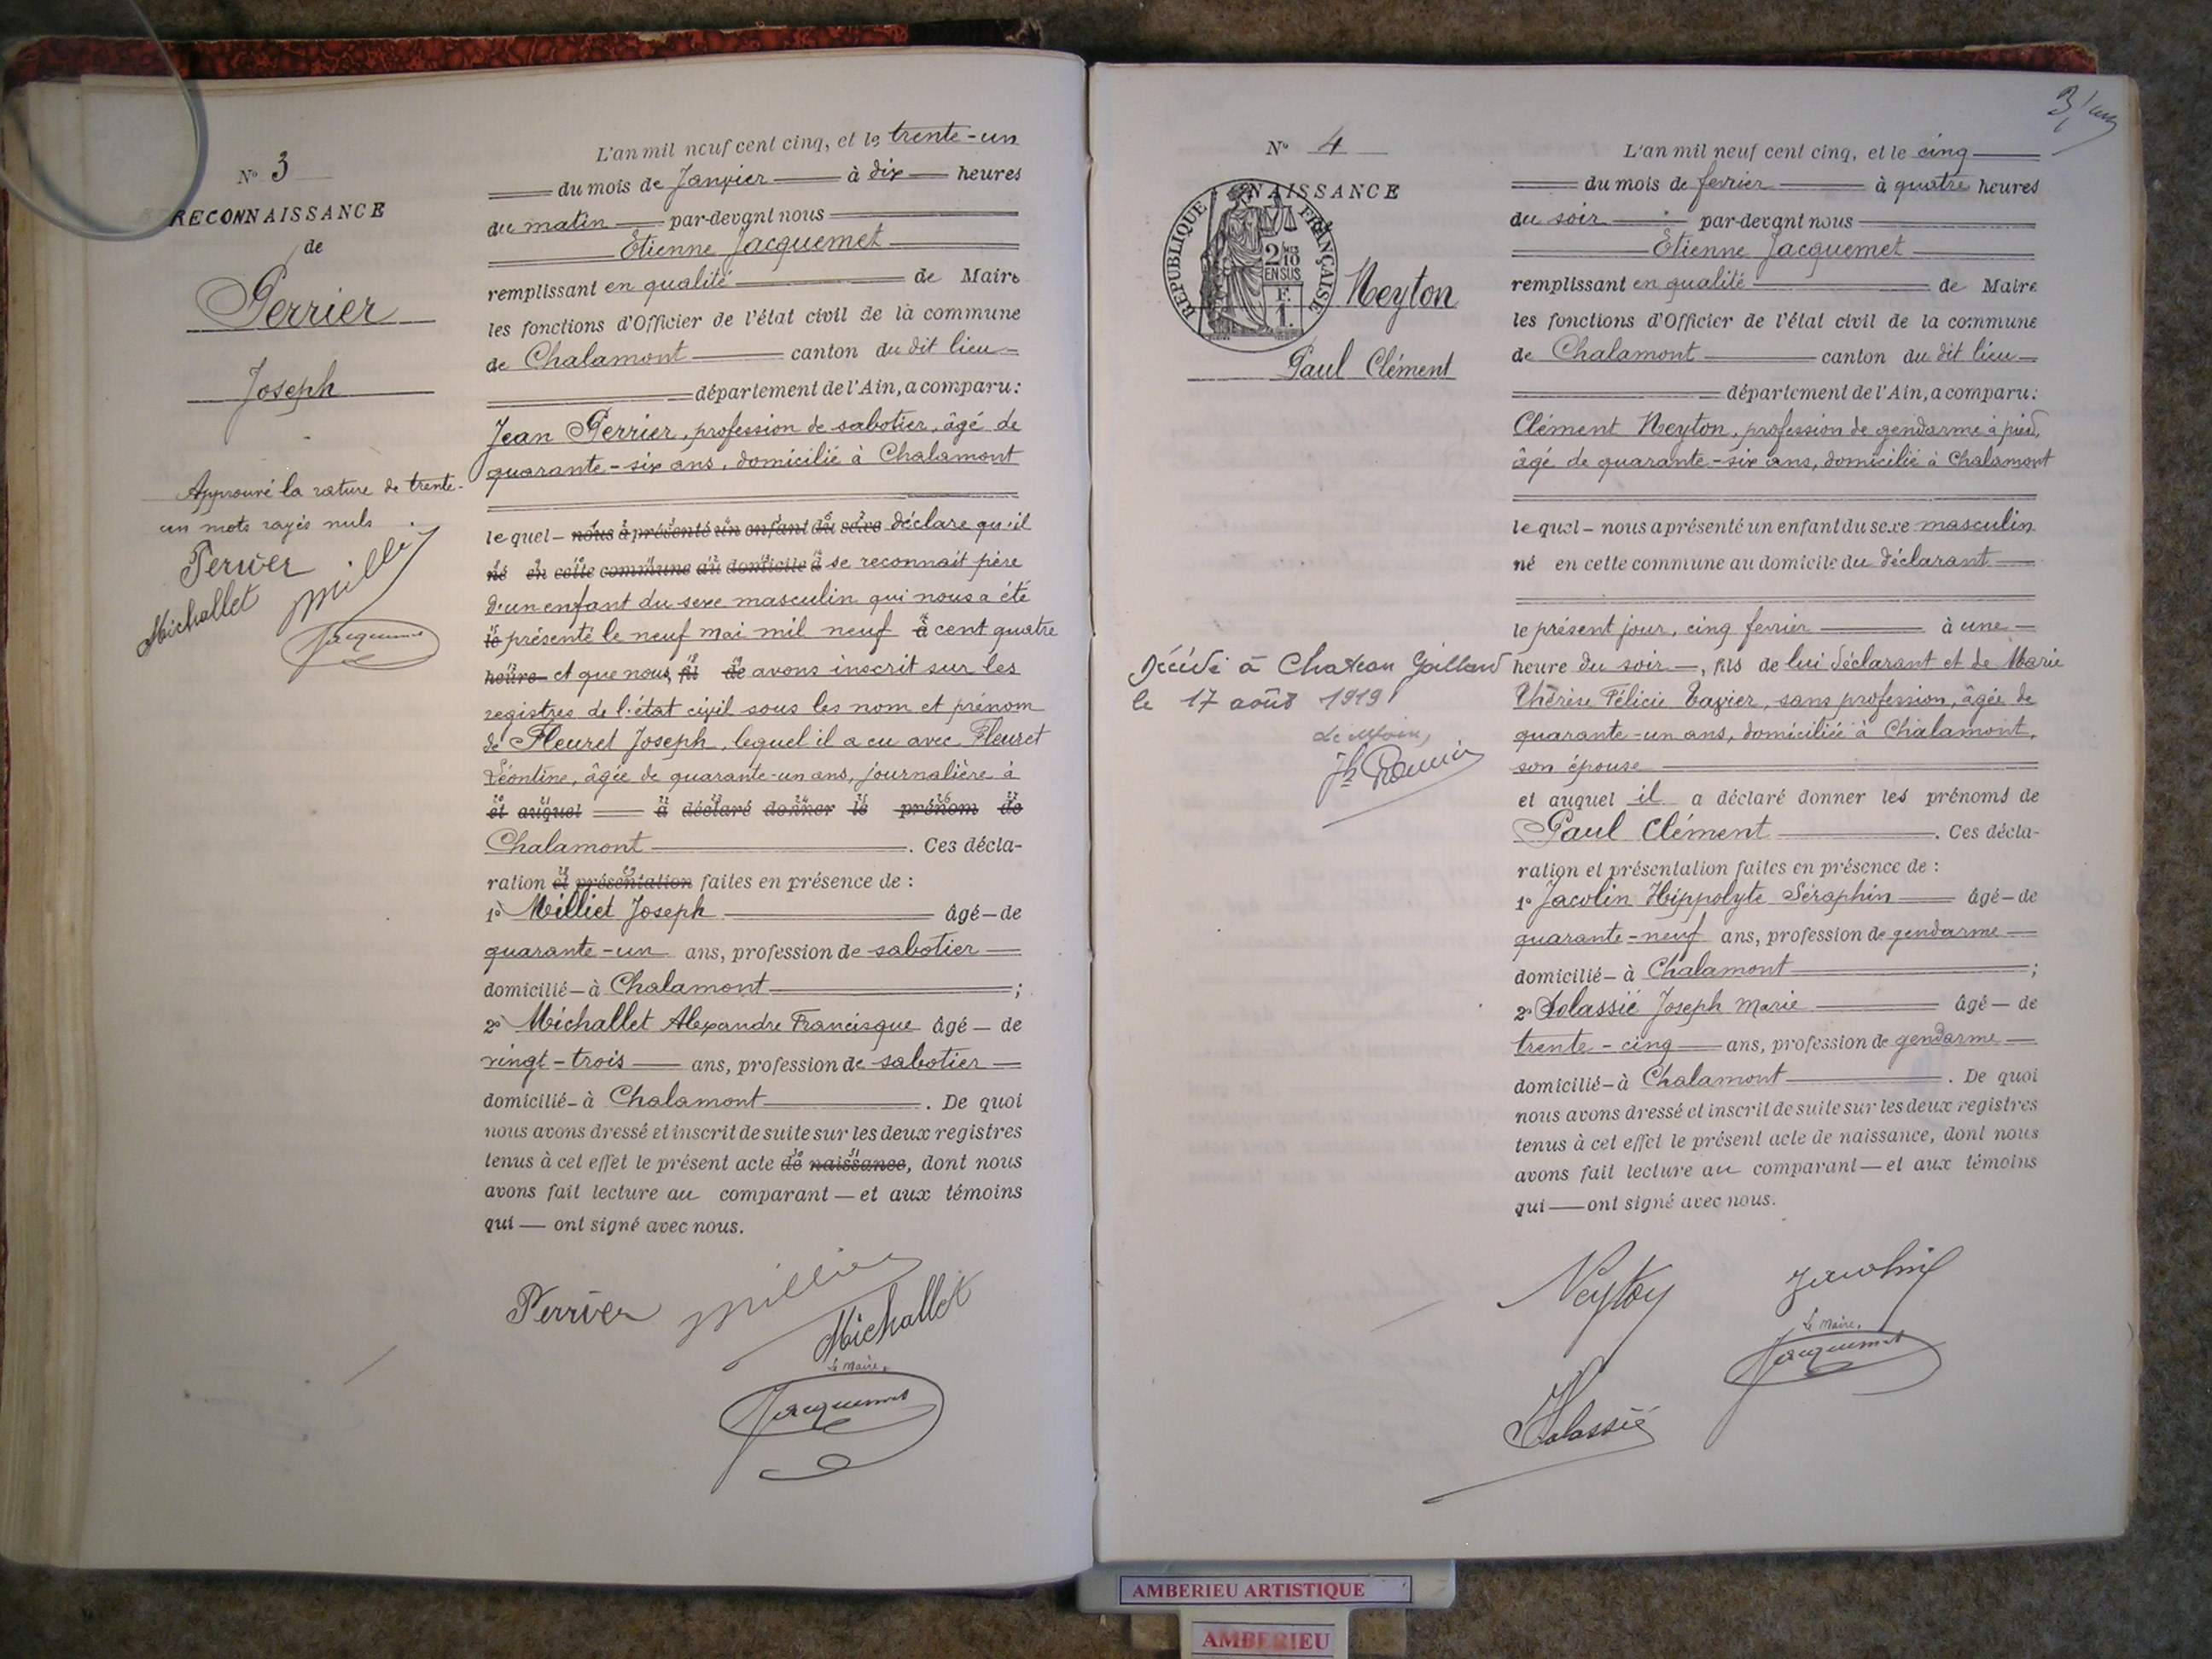 N° 3
RECONNAISSANCE
de
Perrier
Joseph
Approuvé la rature de trente-
un mots rayés nuls.
Perrier
Milliet
Michallet
Jacquemet
L'an mil neuf cent cinq, et le trente-un
du mois de Janvier à dix heures
du matin par-devant nous
Etienne Jacquemet
remplissant en qualité de Maire
les fonctions d'Officier de l'état civil de la commune
de Chalamont canton du dit lieu
département de l'Ain, a comparu:
Jean Perrier, profession de sabotier, âgé de
quarante-six ans, domicilié à Chalamont
le quel - nous a présenté un enfant du sexe déclare qu'il
né en cette commune au domicile d se reconnait père
d'un enfant du sexe masculin qui nous a été
le présenté le neuf mai mil neuf à cent quatre
heure et que nous, fil de avons inscrit sur les
registres de l'état civil sous les nom et prénom
de Fleuret Joseph, lequel il a eu avec Fleuret
Léontine, âgée de quarante-un ans, journalière à
et auquel a déclaré donner le prénom de
Chalamont. Ces décla-
ration et présentation faites en présence de :
1° Milliet Joseph âgé - de
quarante-un ans, profession de sabotier
domicilié - à Chalamont ;
2° Michallet Alexandre Francisque âgé - de
vingt-trois ans, profession de sabotier
domicilié - à Chalamont. De quoi
nous avons dressé et inscrit de suite sur les deux registres
tenus à cet effet le présent acte de naissance, dont nous
avons fait lecture au comparant - et aux témoins
qui - ont signé avec nous.
Perrier
Milliet
Michallet
Le Maire,
Jacquemet
N° 4
NAISSANCE
REPUBLIQUE FRANÇAISE
2/10 EN SUS
F.
1.
Neyton
Paul Clément
Décédé à Chateau Gaillard
le 17 août 1919
L'an mil neuf cent cinq, et le cinq
du mois de fevrier à quatre heures
du soir par-devant nous
Etienne Jacquemet
remplissant en qualité de Maire
les fonctions d'Officier de l'état civil de la commune
de Chalamont canton du dit lieu
département de l'Ain, a comparu:
Clément Neyton, profession de gendarme à pied,
âgé de quarante-six ans, domicilié à Chalamont
le quel - nous a présenté un enfant du sexe masculin
né en cette commune au domicile du déclarant
le présent jour, cinq fevrier à une
heure du soir, fils de lui déclarant et de Marie
Thérèse Félicie Tavier, sans profession, âgée de
quarante-un ans, domiciliée à Chalamont,
son épouse
et auquel il a déclaré donner les prénoms de
Paul Clément. Ces décla-
ration et présentation faites en présence de :
1° Jacolin Hippolyte Séraphin âgé - de
quarante-neuf ans, profession de gendarme
domicilié - à Chalamont ;
2° Solassié Joseph Marie âgé - de
trente-cinq ans, profession de gendarme
domicilié - à Chalamont. De quoi
nous avons dressé et inscrit de suite sur les deux registres
tenus à cet effet le présent acte de naissance, dont nous
avons fait lecture au comparant - et aux témoins
qui - ont signé avec nous.
Neyton
Jacolin
Le Maire,
Jacquemet
AMBERIEU ARTISTIQUE
AMBERIEU